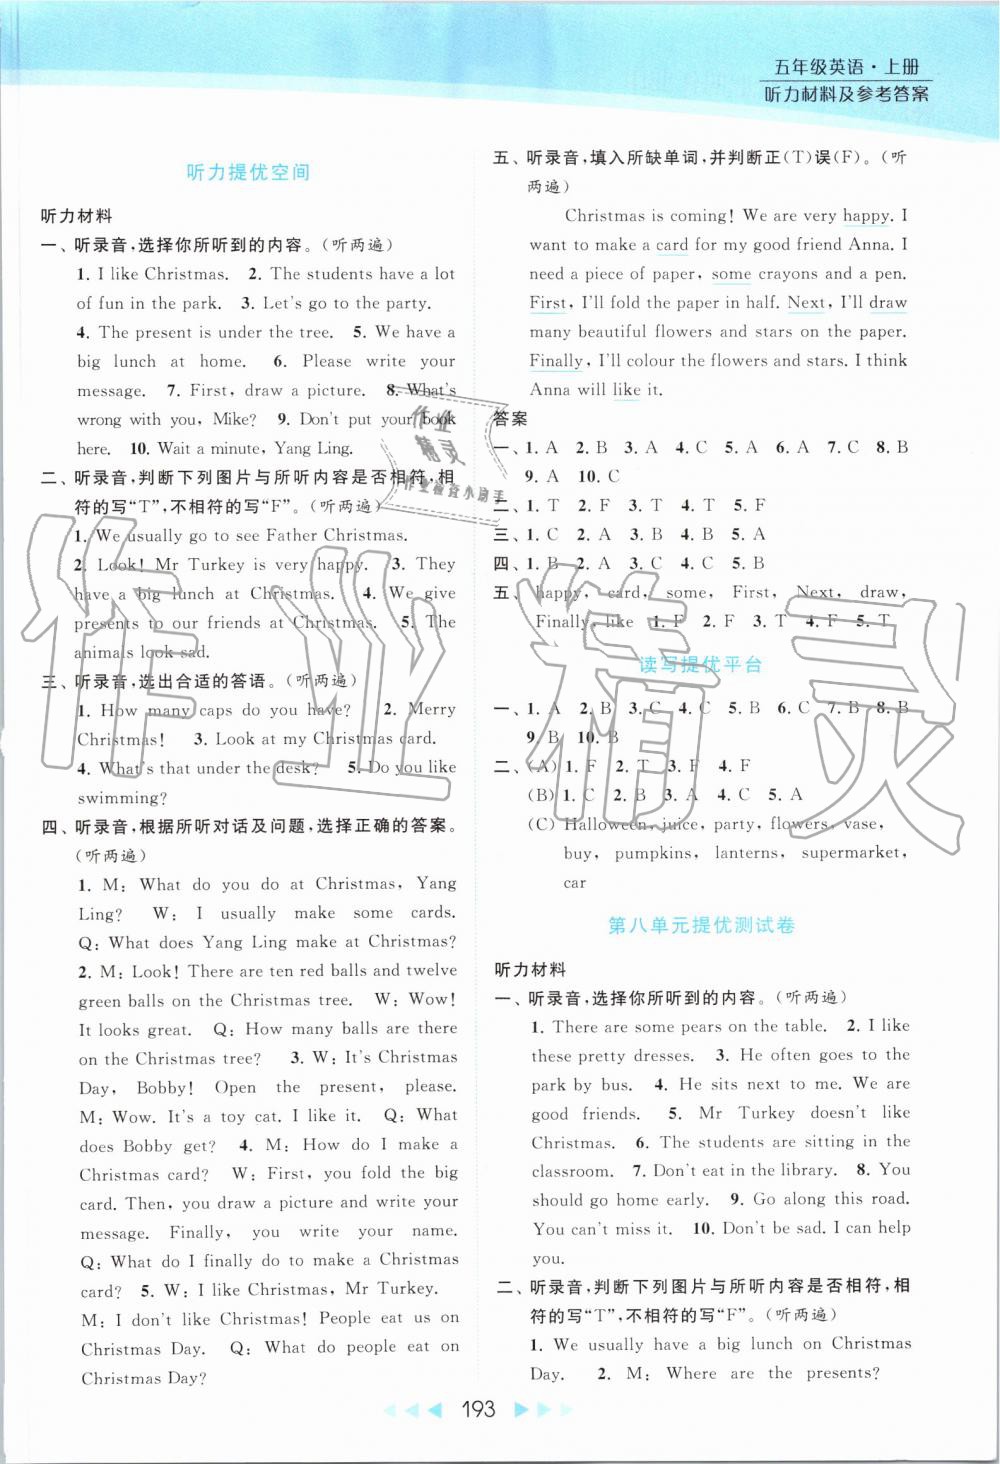 五年级英语·上册
听力材料及参考答案
听力提优空间
听力材料
一、听录音,选择你所听到的内容。(听两遍)
1. I like Christmas. 2. The students have a lot
of fun in the park. 3. Let's go to the party.
4. The present is under the tree. 5. We have a
big lunch at home. 6. Please write your
message. 7. First, draw a picture. 8. What's
wrong with you, Mike? 9. Don't put your book
here. 10. Wait a minute, Yang Ling.
二、听录音,判断下列图片与所听内容是否相符,相
符的写“T”,不相符的写“F”。(听两遍)
1. We usually go to see Father Christmas.
2. Look! Mr Turkey is very happy. 3. They
have a big lunch at Christmas. 4. We give
presents to our friends at Christmas. 5. The
animals look sad.
三、听录音,选出合适的答语。(听两遍)
1. How many caps do you have? 2. Merry
Christmas! 3. Look at my Christmas card.
4. What's that under the desk? 5. Do you like
swimming?
四、听录音,根据所听对话及问题,选择正确的答案。
(听两遍)
1. M: What do you do at Christmas, Yang
Ling? W: I usually make some cards.
Q: What does Yang Ling make at Christmas?
2. M: Look! There are ten red balls and twelve
green balls on the Christmas tree. W: Wow!
It looks great. Q: How many balls are there
on the Christmas tree? 3. W: It's Christmas
Day, Bobby! Open the present, please.
M: Wow. It's a toy cat. I like it. Q: What
does Bobby get? 4. M: How do I make a
Christmas card? W: First, you fold the big
card. Then, you draw a picture and write your
message. Finally, you write your name.
Q: What do I finally do to make a Christmas
card? 5. W: I like Christmas, Mr Turkey.
M: I don't like Christmas! People eat us on
Christmas Day. Q: What do people eat on
Christmas Day?
五、听录音,填入所缺单词,并判断正(T)误(F)。(听
两遍)
Christmas is coming! We are very happy. I
want to make a card for my good friend Anna. I
need a piece of paper, some crayons and a pen.
First, I'll fold the paper in half. Next, I'll draw
many beautiful flowers and stars on the paper.
Finally, I'll colour the flowers and stars. I think
Anna will like it.
答案
一、1. A 2. B 3. A 4. C 5. A 6. A 7. C 8. B
9. A 10. C
二、1. T 2. F 3. T 4. T 5. F
三、1. C 2. A 3. B 4. B 5. A
四、1. B 2. A 3. C 4. C 5. B
五、happy, card, some, First, Next, draw,
Finally, like 1. F 2. F 3. T 4. F 5. T
读写提优平台
一、1. A 2. B 3. C 4. C 5. B 6. C 7. B 8. B
9. B 10. B
二、(A) 1. F 2. T 3. F 4. F
(B) 1. C 2. B 3. A 4. C 5. A
(C) Halloween, juice, party, flowers, vase,
buy, pumpkins, lanterns, supermarket,
car
第八单元提优测试卷
听力材料
一、听录音,选择你所听到的内容。(听两遍)
1. There are some pears on the table. 2. I like
these pretty dresses. 3. He often goes to the
park by bus. 4. He sits next to me. We are
good friends. 5. Mr Turkey doesn't like
Christmas. 6. The students are sitting in the
classroom. 7. Don't eat in the library. 8. You
should go home early. 9. Go along this road.
You can't miss it. 10. Don't be sad. I can help
you.
二、听录音,判断下列图片与所听内容是否相符,相
符的写“T”,不相符的写“F”。(听两遍)
1. We usually have a big lunch on Christmas
Day. 2. M: Where are the presents?
193
作业精灵
作业检查小助手
作业精灵